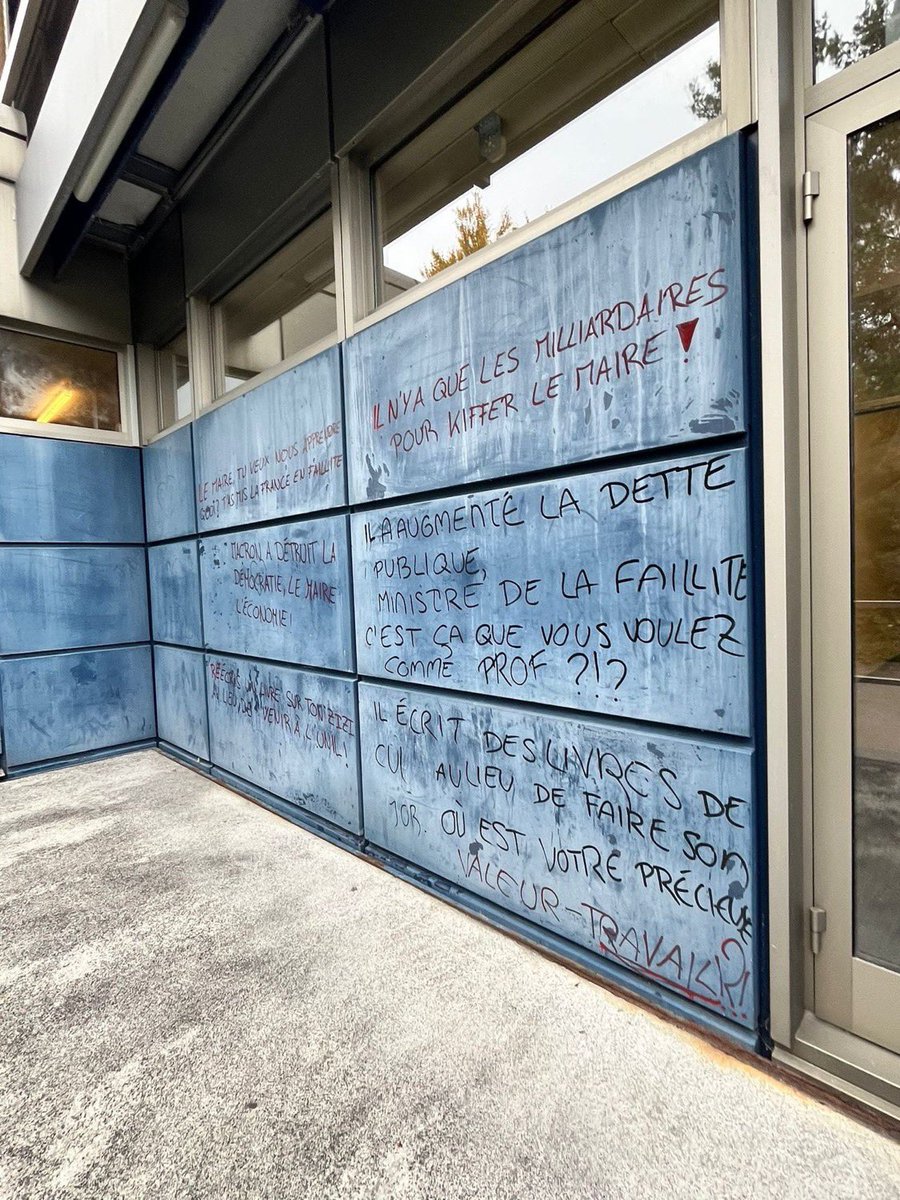 LE MAIRE, TU VEUX NOUS APPRENDRE
QUOI? T'AS MIS LA FRANCE EN FAILLITE
IL N'Y A QUE LES MILLIARDAIRES
POUR KIFFER LE MAIRE !
MACRON A DÉTRUIT LA
DÉMOCRATIE, LE MAIRE
L'ÉCONOMIE!
IL A AUGMENTÉ LA DETTE
PUBLIQUE,
MINISTRE DE LA FAILLITE
C'EST ÇA QUE VOUS VOULEZ
COMME PROF ?!?
UN LIVRE SUR TON ZIZI
AU LIEU DE VENIR À L'UNIL!
IL ÉCRIT DES LIVRES DE
CUL AU LIEU DE FAIRE SON
JOB. OÙ EST VOTRE PRÉCIEUSE
VALEUR-TRAVAIL?!